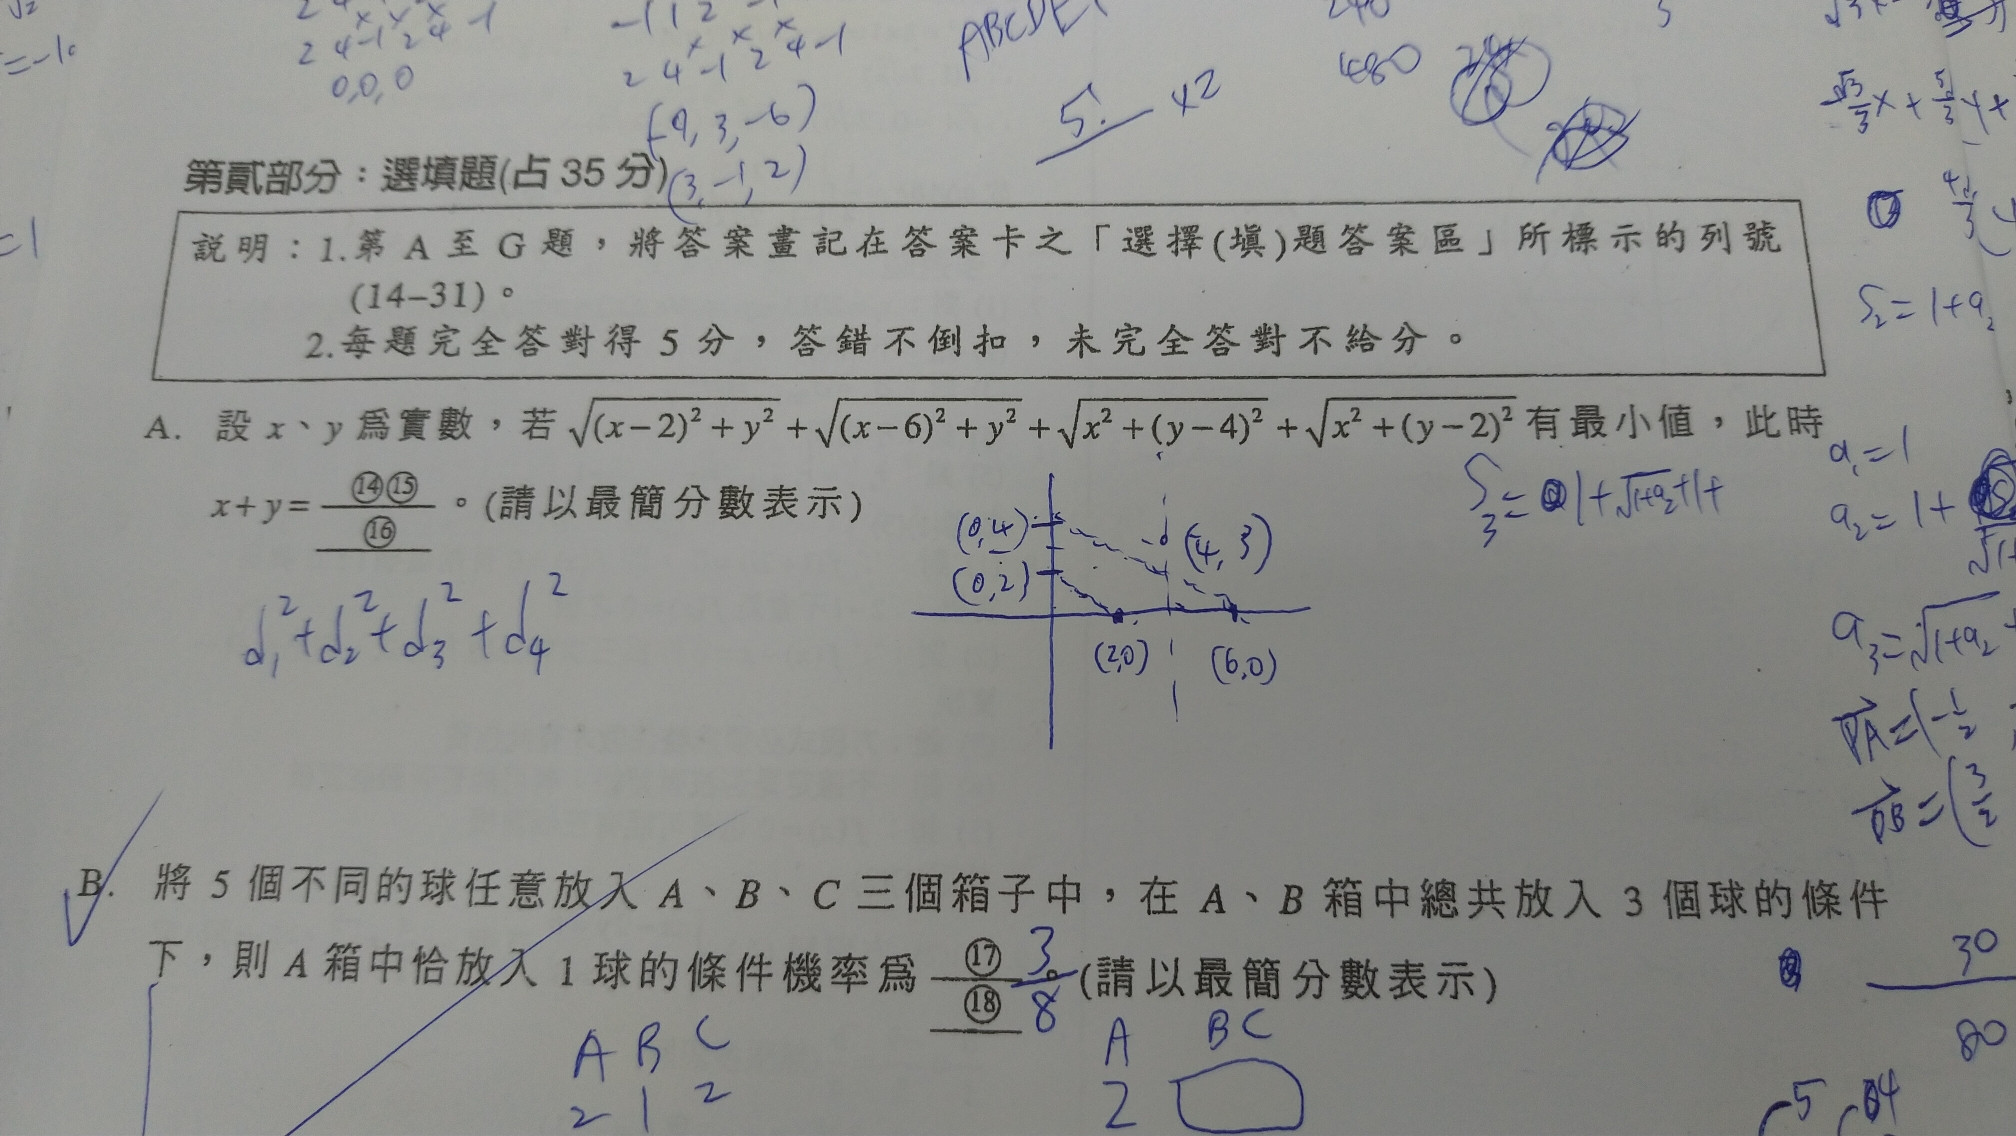 √2
=-1
2 4 -1 2 4 -1
0,0,0
-1 1 2 -1
2 4 -1 2 4 -1
(-9, 3, -6)
(3, -1, 2)
ABCDE
5! ×2
240
480
5
第貳部分：選填題(占 35 分)
=1
説明：1.第 A 至 G 題，將答案畫記在答案卡之「選擇(填)題答案區」所標示的列號
(14–31)。
2.每題完全答對得 5 分，答錯不倒扣，未完全答對不給分。
S₂=1+a₂
A. 設 x、y 為實數，若 √((x−2)²+y²) + √((x−6)²+y²) + √(x²+(y−4)²) + √(x²+(y−2)²) 有最小值，此時
x+y= ⑭⑮/⑯ 。(請以最簡分數表示)
d₁²+d₂²+d₃²+d₄²
(0,4)
(4, 3)
(0,2)
(2,0)
(6,0)
S₃= 1+√1+a₂+1+
a₁=1
a₂=1+
a₃=√1+a₂+
PA=(-1/2
PB=(3/2
B. 將 5 個不同的球任意放入 A、B、C 三個箱子中，在 A、B 箱中總共放入 3 個球的條件
下，則 A 箱中恰放入 1 球的條件機率為 ⑰/⑱ 。(請以最簡分數表示)
3/8
30
80
A B C
2 1 2
A BC
2